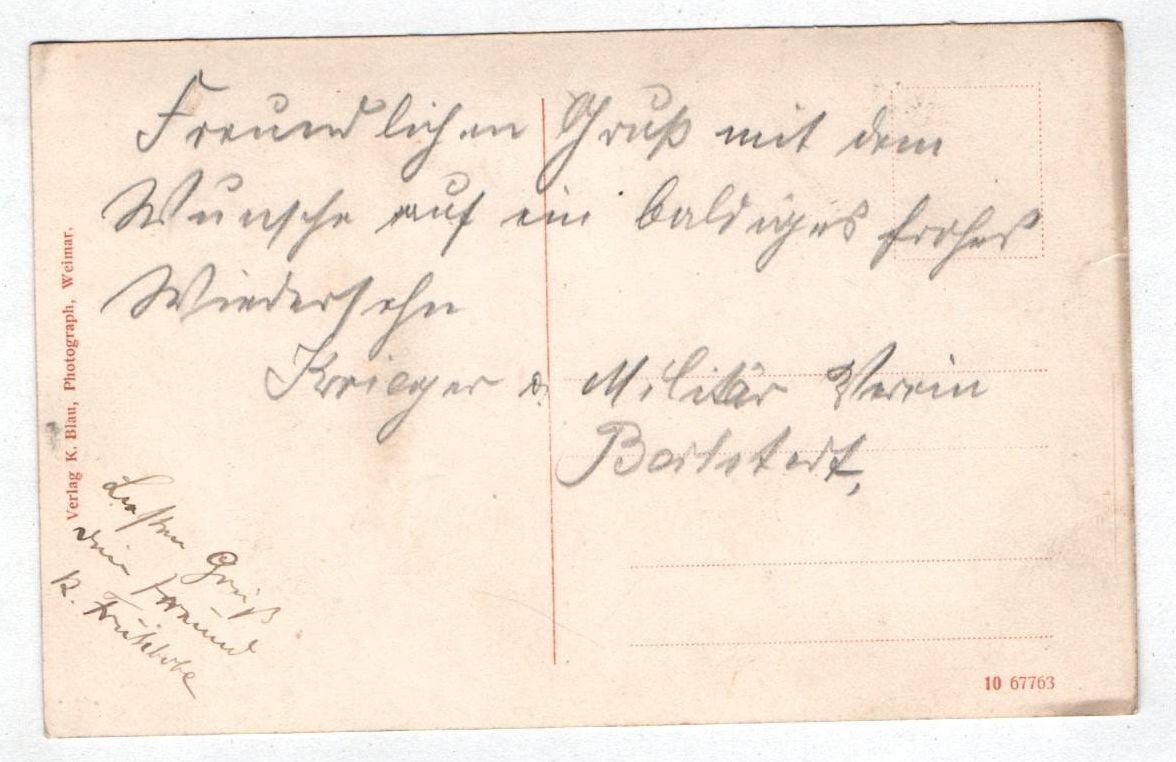 Freundlichen Gruß mit dem
Wunsche auf ein baldiges frohes
Wiedersehn
Krieger u. Militär Verein
Besten Gruß
dein Freund
K.
Verlag K. Blau, Photograph, Weimar.
10 67763